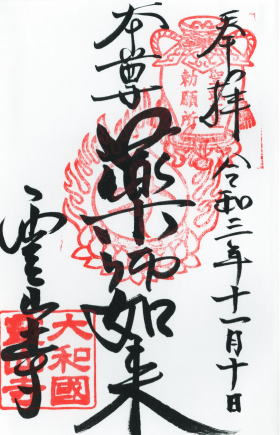 奉拝
令和三年十一月十日
勅願所
本尊
薬師如来
霊山寺
大和國
霊山寺